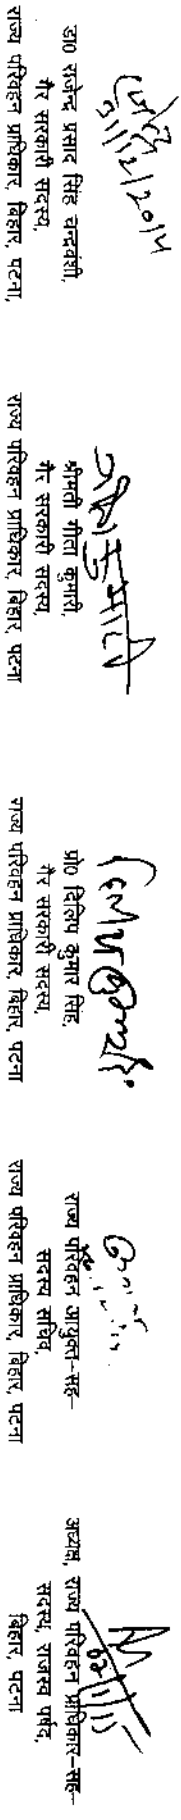 31/12/2014
डा0 राजेन्द्र प्रसाद सिंह चन्द्रवंशी,
गैर सरकारी सदस्य,
राज्य परिवहन प्राधिकार, बिहार, पटना,
गीता कुमारी
श्रीमती गीता कुमारी,
गैर सरकारी सदस्य,
राज्य परिवहन प्राधिकार, बिहार, पटना
प्रो0 दिलिप कुमार सिंह,
गैर सरकारी सदस्य,
राज्य परिवहन प्राधिकार, बिहार, पटना
राज्य परिवहन आयुक्त-सह-
सदस्य सचिव,
राज्य परिवहन प्राधिकार, बिहार, पटना
अध्यक्ष, राज्य परिवहन प्राधिकार-सह-
सदस्य, राजस्व पर्षद,
बिहार, पटना